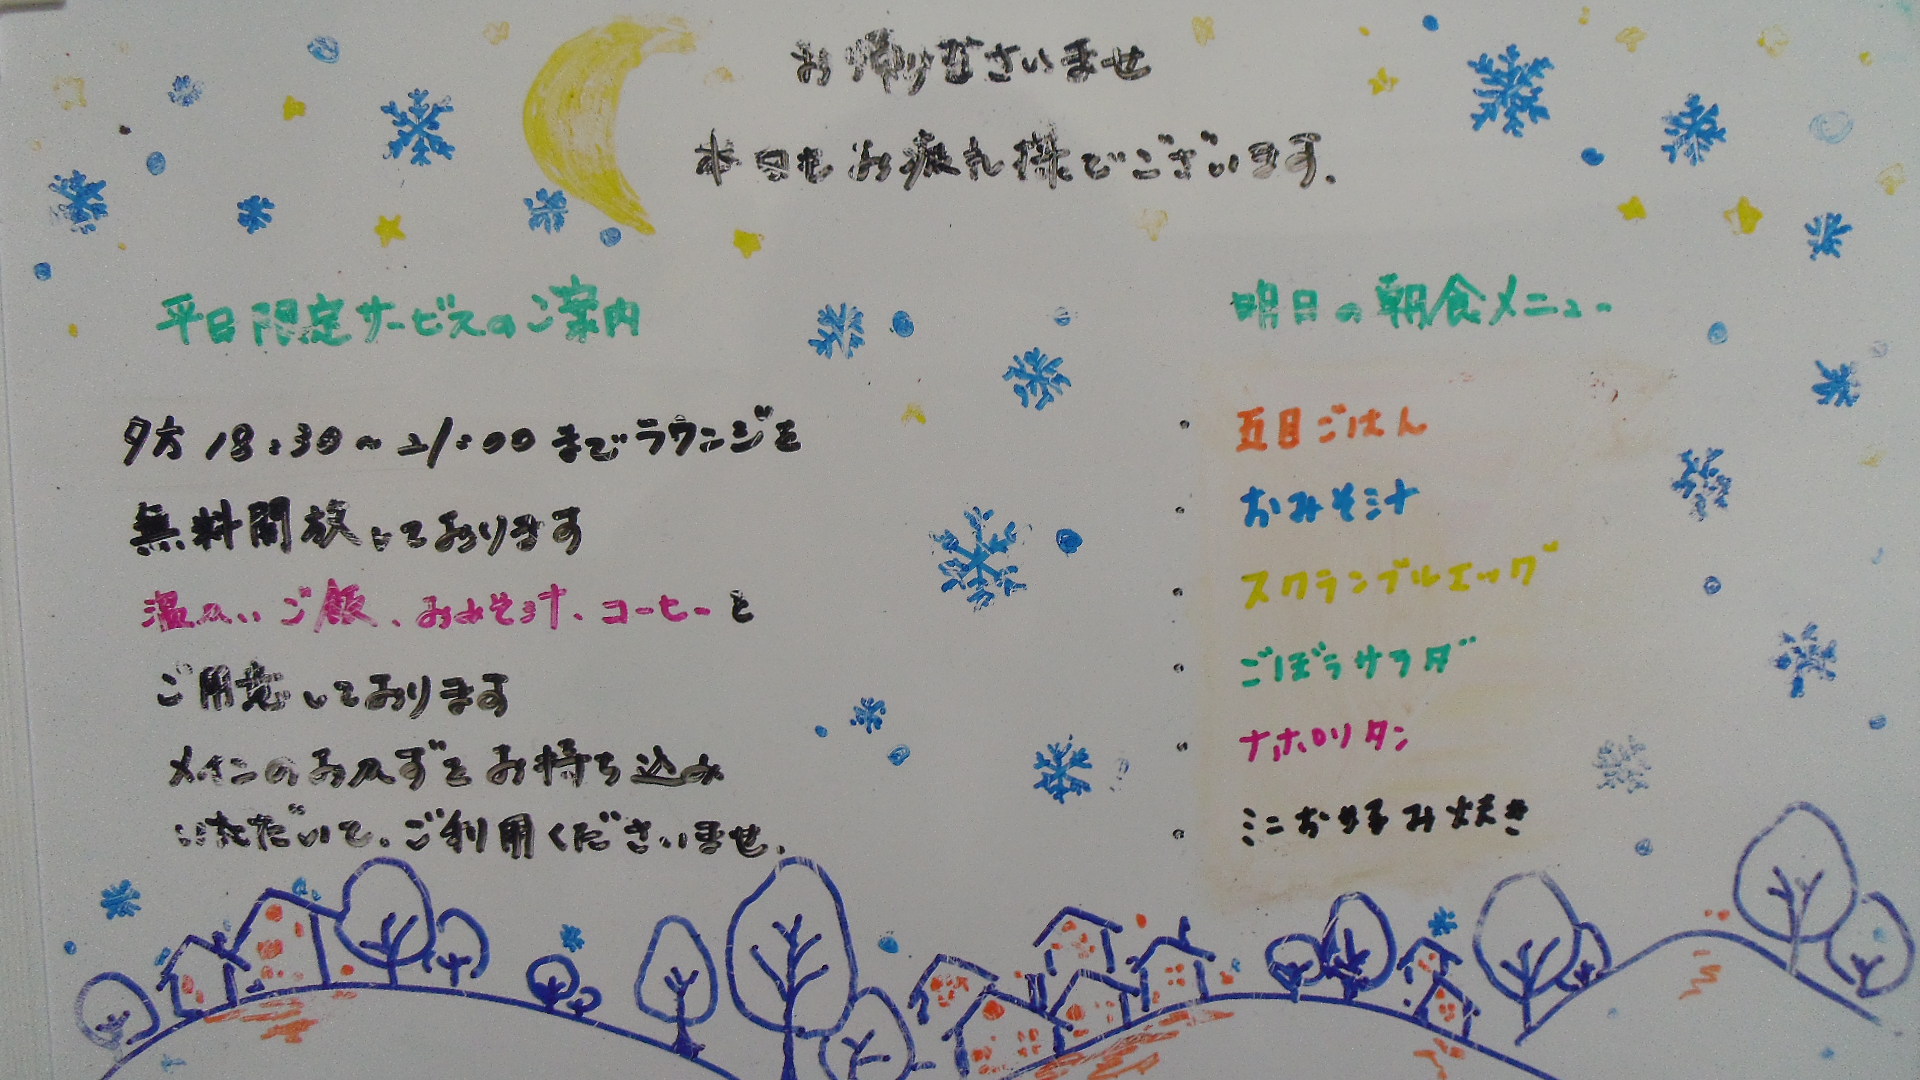 お帰りなさいませ
本日もお疲れ様でございます。
平日限定サービスのご案内
夕方18:30~21:00までラウンジを
無料開放しております
温かいご飯、おみそ汁、コーヒーを
ご用意しております
メインのおかずをお持ち込み
いただいて、ご利用くださいませ。
明日の朝食メニュー
・五目ごはん
・おみそ汁
・スクランブルエッグ
・ごぼうサラダ
・ナポリタン
・ミニお好み焼き